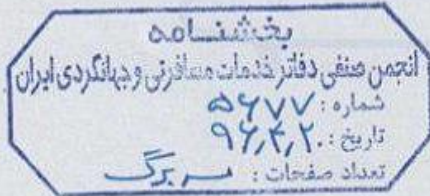 بخشنامه
انجمن صنفی دفاتر خدمات مسافرتی و جهانگردی ایران
شماره : ۵۶۷۷
تاریخ : ۹۶٫۴٫۲۰
تعداد صفحات : سه برگ